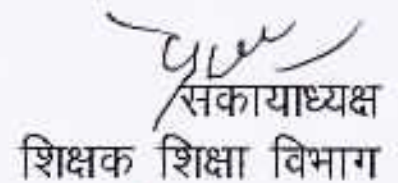 सकायाध्यक्ष
शिक्षक शिक्षा विभाग